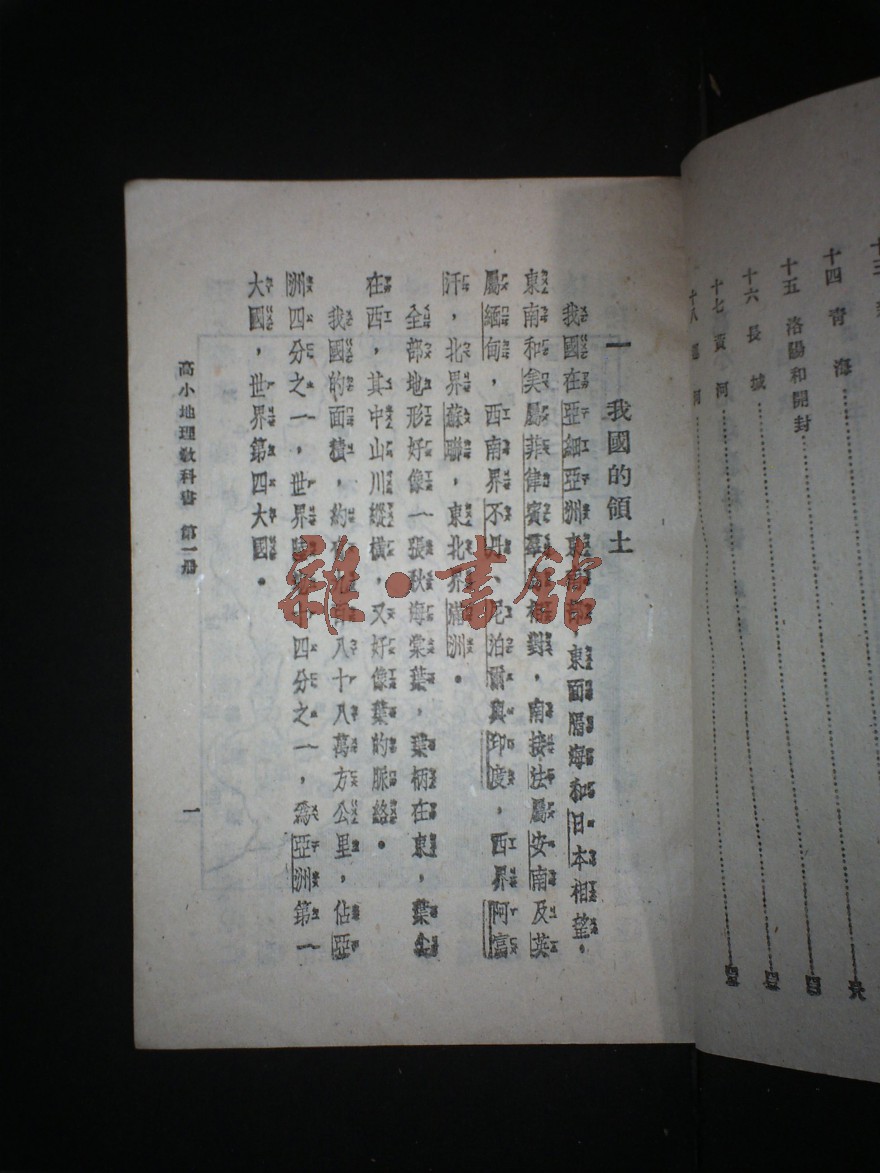 十三
十四 青海
十五 洛陽和開封
十六 長城
十七 黃河
十八 運河
一 我國的領土
我國在亞細亞洲東南部，東面隔海和日本相望，
東南和美屬菲律賓羣島相對，南接法屬安南及英
屬緬甸，西南界不丹、尼泊爾與印度，西界阿富
汗，北界蘇聯，東北界滿洲。
全部地形好像一張秋海棠葉，葉柄在東，葉尖
在西，其中山川縱橫，又好像葉的脈絡。
我國的面積，約有九百八十八萬方公里，佔亞
洲四分之一，世界陸地十四分之一，爲亞洲第一
大國，世界第四大國。
高小地理教科書 第一册
一
雜·書館